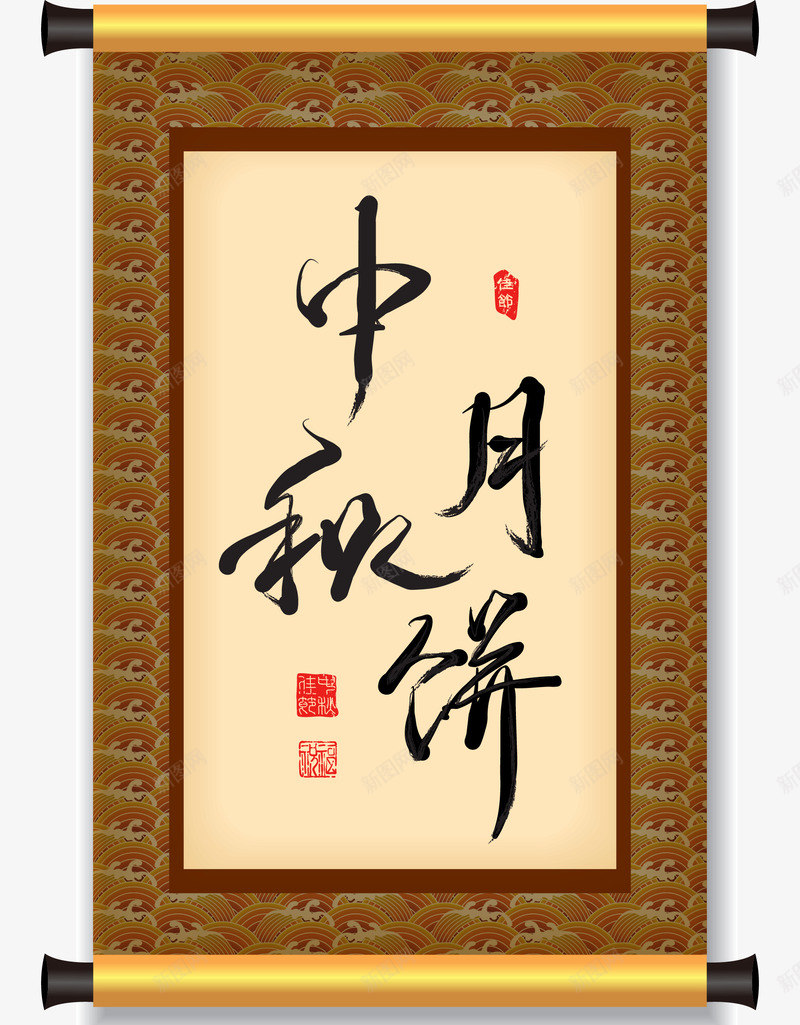 中秋
月饼
佳节
中秋佳節
祝福
新图网